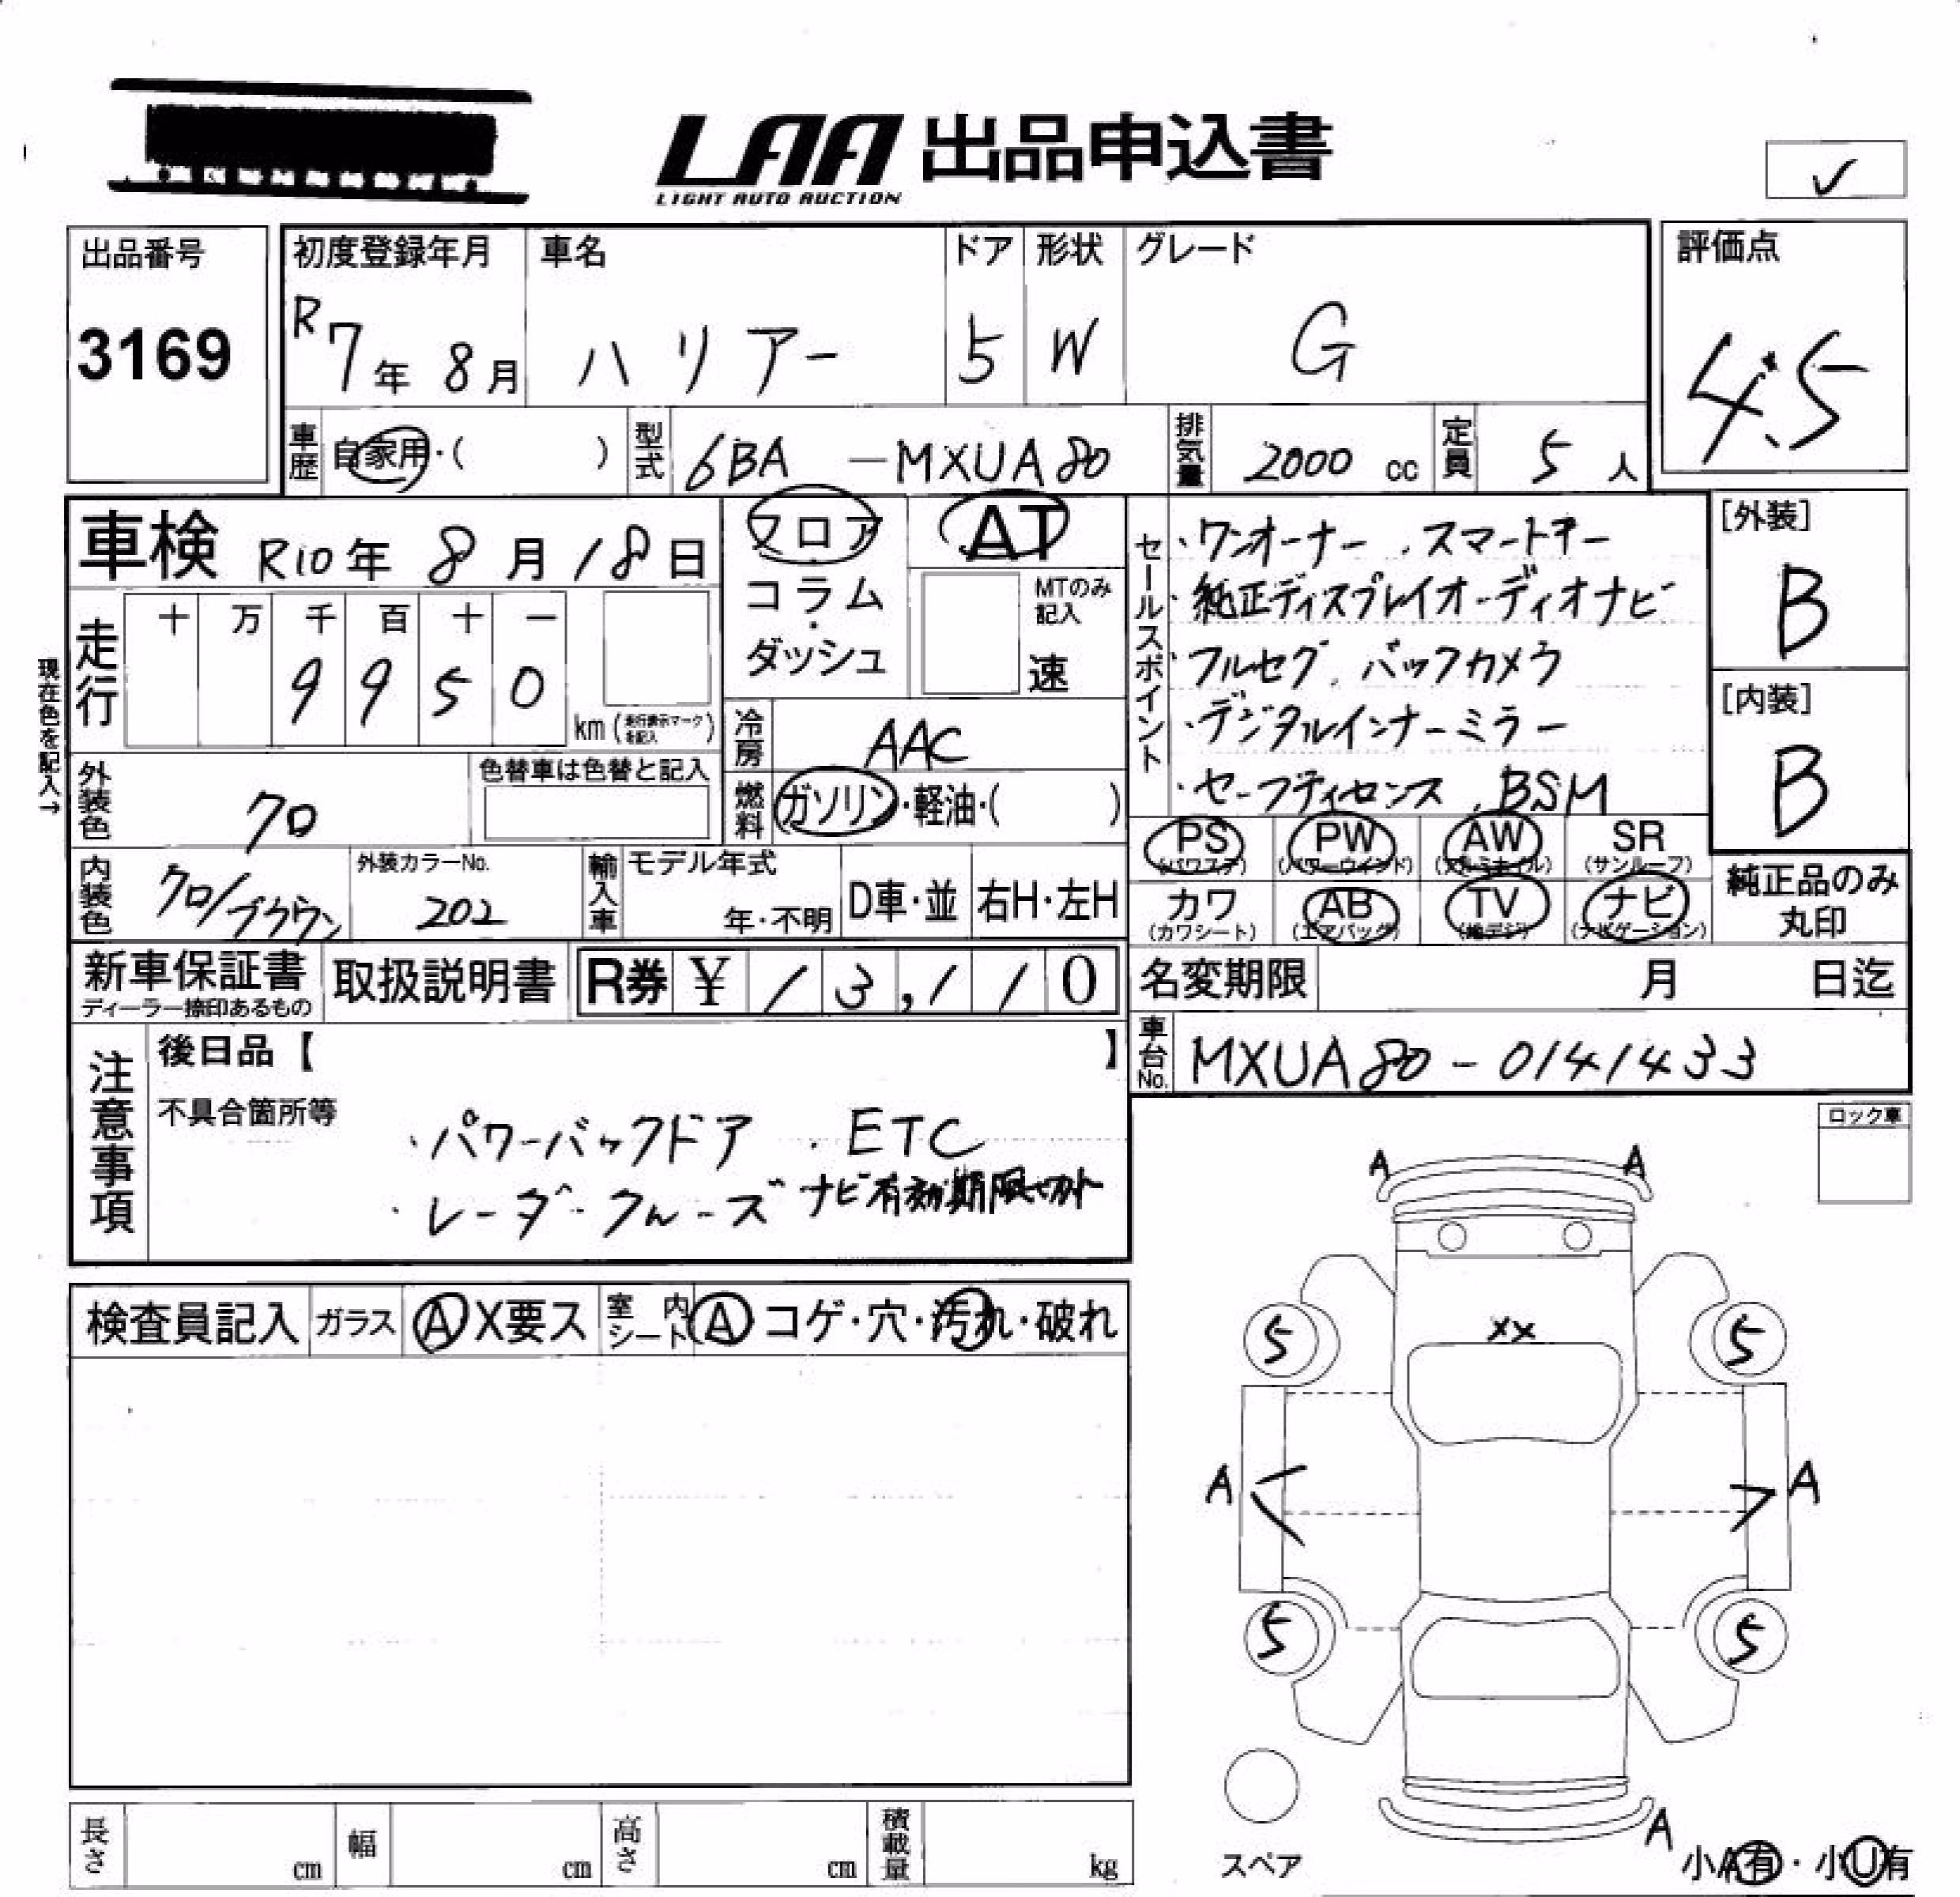 LAA 出品申込書
LIGHT AUTO AUCTION
✓
出品番号
3169
初度登録年月
R7年 8月
車名
ハリアー
ドア
5
形状
W
グレード
G
評価点
4.5
車歴 自家用・( )
型式 6BA -MXUA80
排気量 2000 cc
定員 5 人
車検 R10年 8月 18日
フロア
コラム
・
ダッシュ
AT
MTのみ
記入
速
走行
十 万 千 百 十 一
9 9 5 0
km (走行表示マークを記入)
現在色を記入→
冷房 AAC
燃料 ガソリン・軽油・( )
外装色 クロ
色替車は色替と記入
内装色 クロ/ブラウン
外装カラーNo.
202
輸入車
モデル年式
年・不明
D車・並
右H・左H
セールスポイント
・ワンオーナー ・スマートキー
・純正ディスプレイオーディオナビ
フルセグ、バックカメラ
・デジタルインナーミラー
・セーフティセンス、BSM
[外装]
B
[内装]
B
PS (パワステ)
PW (パワーウインド)
AW (アルミホイル)
SR (サンルーフ)
カワ (カワシート)
AB (エアバッグ)
TV (地デジ)
ナビ (ナビゲーション)
純正品のみ
丸印
新車保証書
ディーラー捺印あるもの
取扱説明書
R券 ¥ 13,110
名変期限 月 日迄
車台No. MXUA80-0141433
注意事項
後日品【 】
不具合箇所等
・パワーバックドア ・ETC
・レーダークルーズ ナビ有効期限切れ
ロック車
検査員記入
ガラス A X要ス
室内シート A コゲ・穴・汚れ・破れ
A A
XX
5 5
A A
5 5
A
スペア
小A有・小U有
長さ cm
幅 cm
高さ cm
積載量 kg